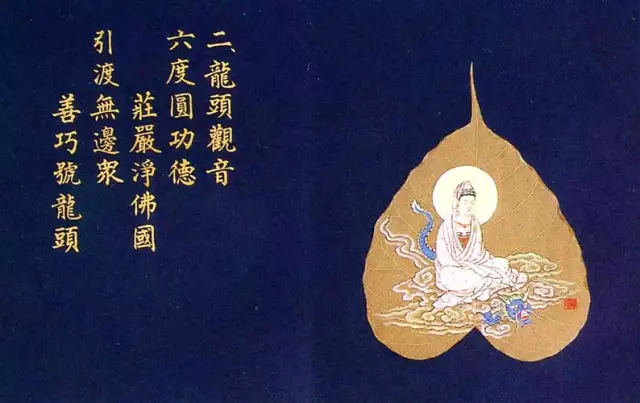 二、龍頭觀音
六度圓功德
莊嚴淨佛國
引渡無邊眾
善巧號龍頭